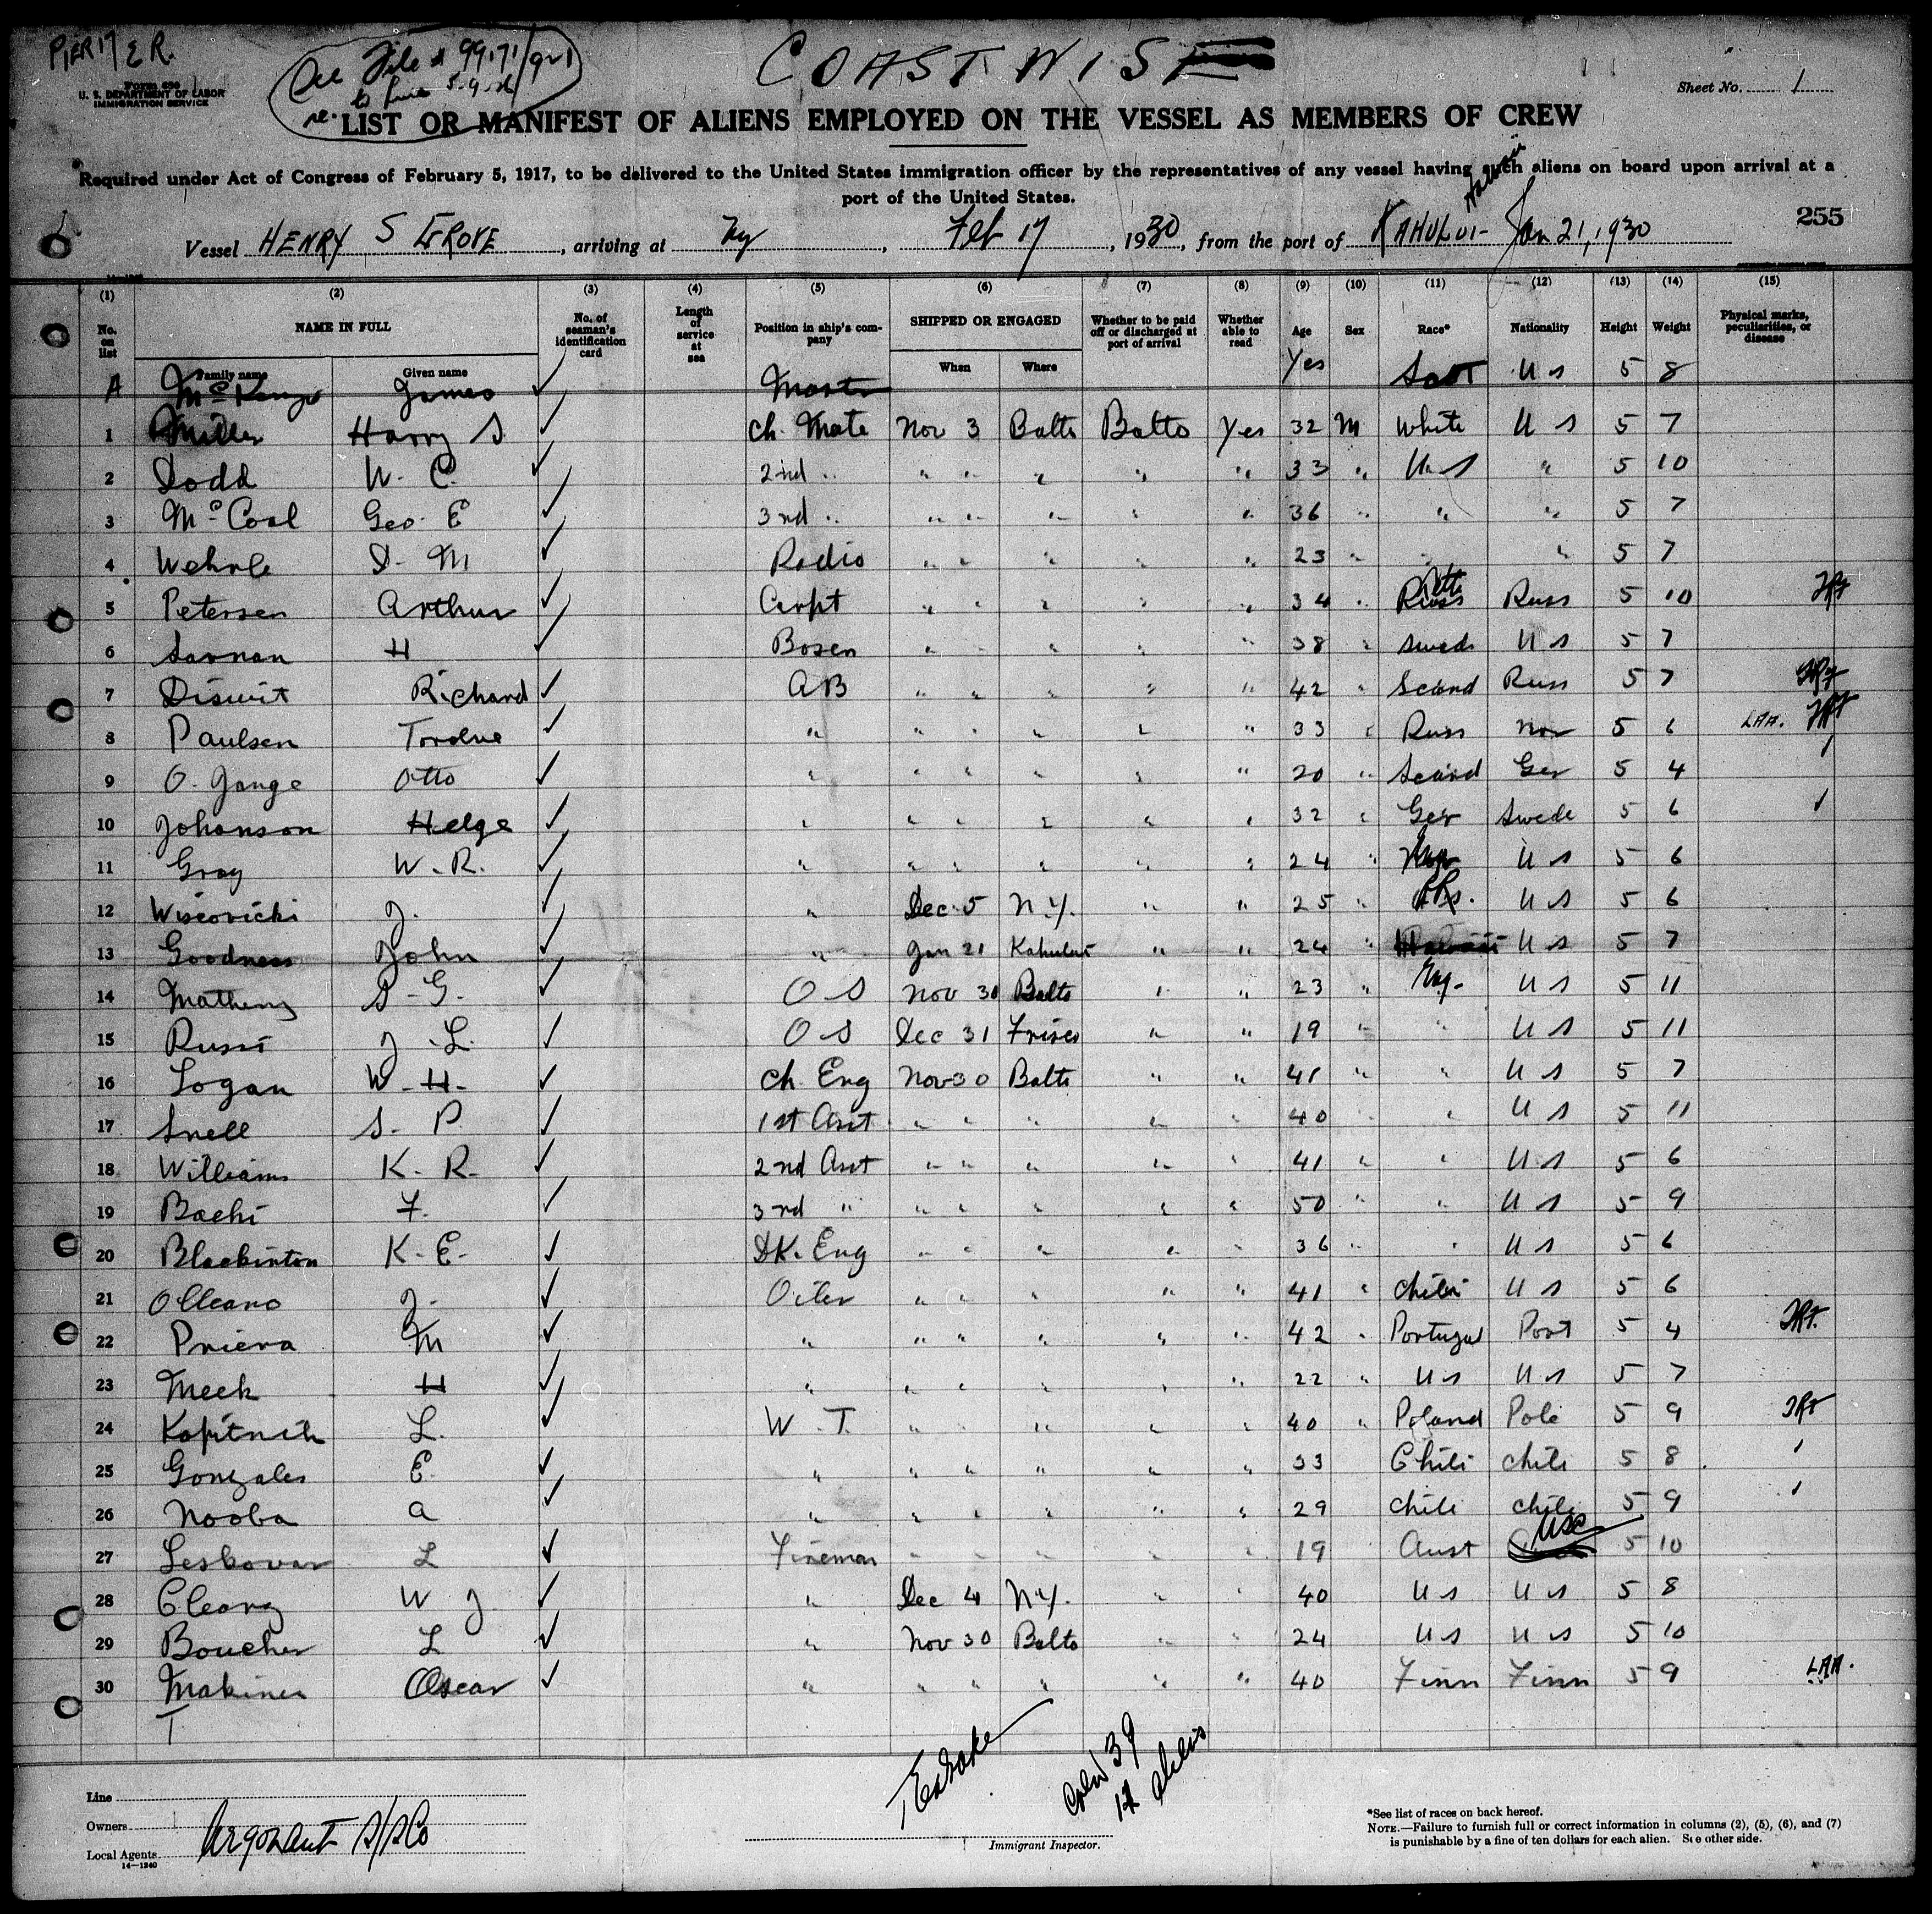 PIER 17 E R.
COASTWISE
See File # 99171/921
Form 680
U. S. DEPARTMENT OF LABOR
IMMIGRATION SERVICE
Sheet No. 1
re.
LIST OR MANIFEST OF ALIENS EMPLOYED ON THE VESSEL AS MEMBERS OF CREW
Required under Act of Congress of February 5, 1917, to be delivered to the United States immigration officer by the representatives of any vessel having such aliens on board upon arrival at a
port of the United States.
255
Vessel HENRY S GROVE, arriving at NY, Feb 17, 1930, from the port of KAHULUI- Jan 21, 1930
(1) (2) (3) (4) (5) (6) (7) (8) (9) (10) (11) (12) (13) (14) (15)
No. on list NAME IN FULL No. of seaman's identification card Length of service at sea Position in ship's company SHIPPED OR ENGAGED Whether to be paid off or discharged at port of arrival Whether able to read Age Sex Race* Nationality Height Weight Physical marks, peculiarities, or disease
Family name Given name When Where
A McKenzie James ✓ Master Yes Scot U S 5 8
1 Miller Harry S. ✓ Ch. Mate Nov 3 Balto Balto Yes 32 M White U S 5 7
2 Dodd W. C. ✓ 2nd " " " " " " 33 " U S " 5 10
3 McCool Geo. E ✓ 3rd " " " " " " 36 " " " 5 7
4 Wehrle D. M ✓ Radio " " " " " 23 " " " 5 7
5 Petersen Arthur ✓ Carpt " " " " " 34 " Russ Russ 5 10
6 Sarnan H ✓ Bosen " " " " 38 " Swede U S 5 7
7 Diswit Richard ✓ AB " " " " " 42 " Scand Russ 5 7
8 Paulsen ✓ " " " " " " 33 " Russ Nor 5 6 LAA.
9 O. Gange Otto ✓ " " " " " " 20 " Scand Ger 5 4
10 Johanson Helge ✓ " " " " " " 32 " Ger Swede 5 6 ✓
11 Gray W. R. ✓ " " " " " " 24 " U S 5 6
12 Wiscovichi J. ✓ " Dec 5 N.Y. " " 25 " U S 5 6
13 Goodness John ✓ " Jan 21 Kahului " " 24 " Hawaii U S 5 7
14 Matheny S. G. ✓ O S Nov 30 Balto " " 23 " U S 5 11
15 Russi J. L. ✓ O S Dec 31 Frisco " " 19 " " U S 5 11
16 Logan W. H. ✓ Ch. Eng Nov 30 Balto " " 41 " " U S 5 7
17 Snell S. P. ✓ 1st Asst " " " " " 40 " " U S 5 11
18 Williams K. R. ✓ 2nd Asst " " " " " 41 " " U S 5 6
19 Bachi F. ✓ 3rd " " " " " " 50 " " U S 5 9
20 Blackinton K. E. ✓ DK. Eng " " " " " 36 " " U S 5 6
21 Olleano J. ✓ Oiler " " " " " 41 " Chili U S 5 6
22 Priera M ✓ " " " " " " 42 " Portugal Port 5 4
23 Meek H ✓ " " " " " " 22 " U S U S 5 7
24 Kapitnich L. ✓ W. T. " " " " " 40 " Poland Pole 5 9
25 Gonzales E. ✓ " " " " " " 33 Chili Chili 5 8
26 Nooba A ✓ " " " " " " 29 Chili Chili 5 9
27 Leskovar L ✓ Fireman " " " " " 19 Aust USC 5 10
28 Cleary W J ✓ " Dec 4 N.Y. " " 40 U S U S 5 8
29 Boucher L ✓ " Nov 30 Balto " " 24 U S U S 5 10
30 Makinen Oscar ✓ " " " " " " 40 Finn Finn 5 9 LAA.
Crew 39
Line
Owners
Local Agents
Argonaut S/S Co
14—1240
Immigrant Inspector.
*See list of races on back hereof.
NOTE.—Failure to furnish full or correct information in columns (2), (5), (6), and (7)
is punishable by a fine of ten dollars for each alien. See other side.